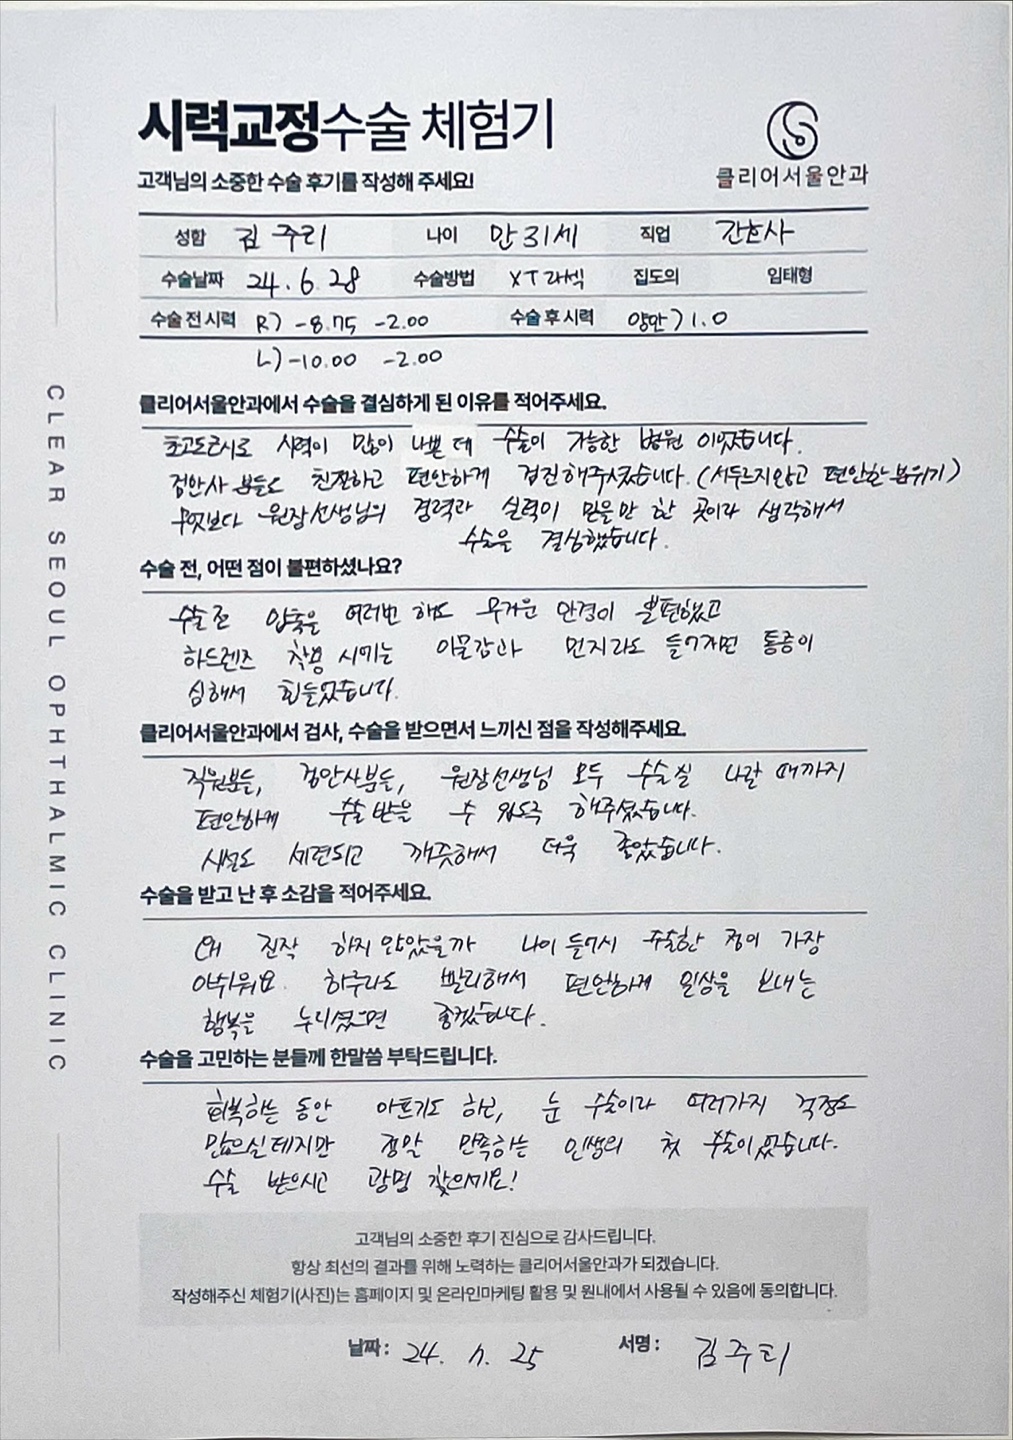 시력교정수술 체험기
고객님의 소중한 수술 후기를 작성해 주세요!
클리어서울안과
성함 김주리 나이 만 31세 직업 간호사
수술날짜 24. 6. 28 수술방법 XT라섹 집도의 임태형
수술 전 시력 R) -8.75 -2.00 수술 후 시력 양안) 1.0
L) -10.00 -2.00
CLEAR SEOUL OPHTHALMIC CLINIC
클리어서울안과에서 수술을 결심하게 된 이유를 적어주세요.
초고도근시로 시력이 많이 나쁜데 수술이 가능한 병원이었습니다.
검안사 분들도 친절하고 편안하게 검진해주셨습니다. (서두르지않고 편안한 분위기)
무엇보다 원장선생님의 경력과 실력이 믿을만 한 곳이라 생각해서
수술을 결심했습니다.
수술 전, 어떤 점이 불편하셨나요?
수술전 압축을 여러번 해도 무거운 안경이 불편했고
하드렌즈 착용 시에는 이물감과 먼지라도 들어가면 통증이
심해서 힘들었습니다.
클리어서울안과에서 검사, 수술을 받으면서 느끼신 점을 작성해주세요.
직원분들, 검안사분들, 원장선생님 모두 수술실 나갈 때까지
편안하게 수술받을 수 있도록 해주셨습니다.
시설도 세련되고 깨끗해서 더욱 좋았습니다.
수술을 받고 난 후 소감을 적어주세요.
왜 진작 하지 않았을까 나이 들어서 수술한 점이 가장
아쉬워요. 하루라도 빨리해서 편안하게 일상을 보내는
행복을 누리셨으면 좋겠습니다.
수술을 고민하는 분들께 한말씀 부탁드립니다.
회복하는 동안 아프기도 하고, 눈 수술이라 여러가지 걱정도
많으실테지만 정말 만족하는 인생의 첫 수술이었습니다.
수술 받으시고 광명 찾으세요!
고객님의 소중한 후기 진심으로 감사드립니다.
항상 최선의 결과를 위해 노력하는 클리어서울안과가 되겠습니다.
작성해주신 체험기(사진)는 홈페이지 및 온라인마케팅 활용 및 원내에서 사용될 수 있음에 동의합니다.
날짜 : 24. 7. 25 서명 : 김주리